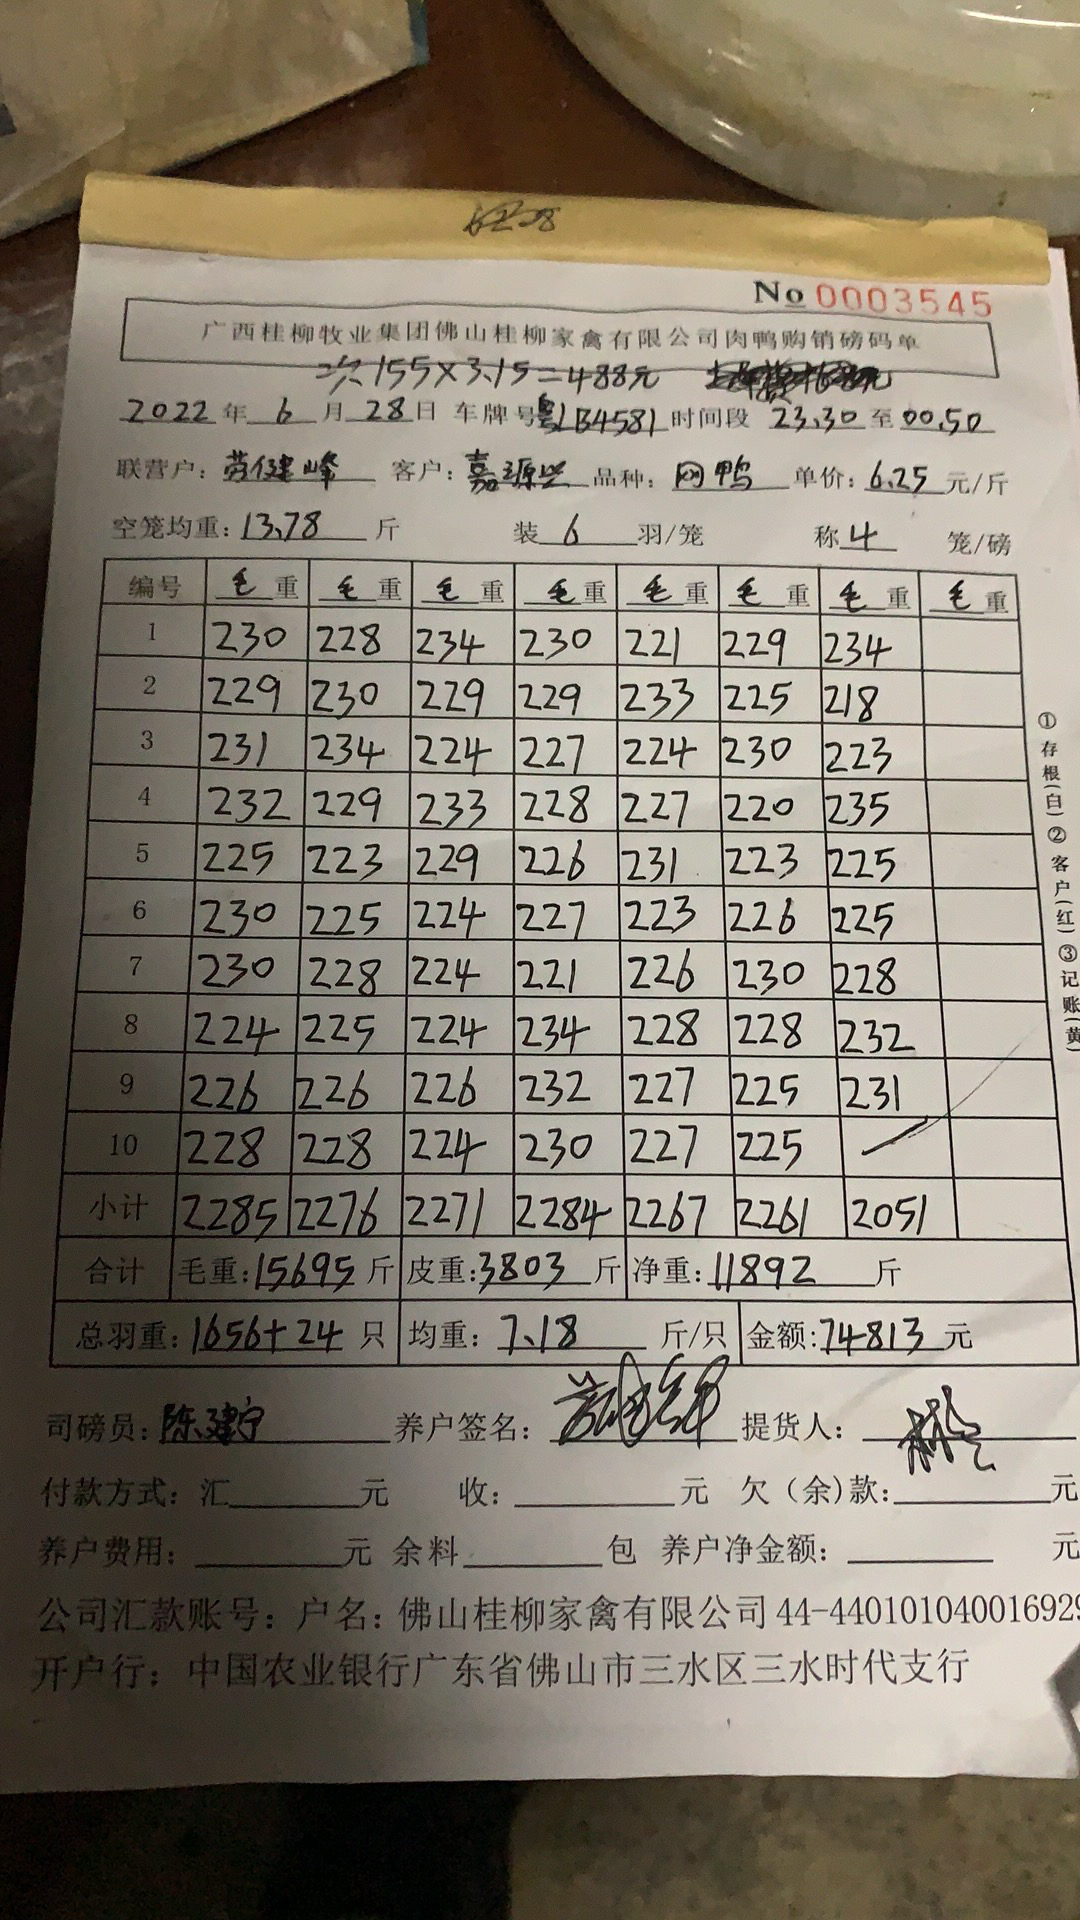 No 0003545
广西桂柳牧业集团佛山桂柳家禽有限公司肉鸭购销磅码单
次155×3.15=488元
2022年 6月 28日 车牌号粤LB4581 时间段 23.30至00.50
联营户:劳健峰 客户:嘉源兴 品种:网鸭 单价:6.25元/斤
空笼均重:13.78斤 装6羽/笼 称4笼/磅
编号 毛重 毛重 毛重 毛重 毛重 毛重 毛重 毛重
1 230 228 234 230 221 229 234
2 229 230 229 229 233 225 218
3 231 234 224 227 224 230 223
4 232 229 233 228 227 220 235
5 225 223 229 226 231 223 225
6 230 225 224 227 223 226 225
7 230 228 224 221 226 230 228
8 224 225 224 234 228 228 232
9 226 226 226 232 227 225 231
10 228 228 224 230 227 225
小计 2285 2276 2271 2284 2267 2261 2051
合计 毛重:15695斤 皮重:3803斤 净重:11892斤
总羽重:1656+24只 均重:7.18斤/只 金额:74813元
司磅员:陈建宁 养户签名: 提货人:
付款方式:汇 元 收: 元 欠(余)款: 元
养户费用: 元 余料 包 养户净金额: 元
公司汇款账号:户名:佛山桂柳家禽有限公司 44-44010104001692
开户行:中国农业银行广东省佛山市三水区三水时代支行
①存根(白)②客户(红)③记账(黄)